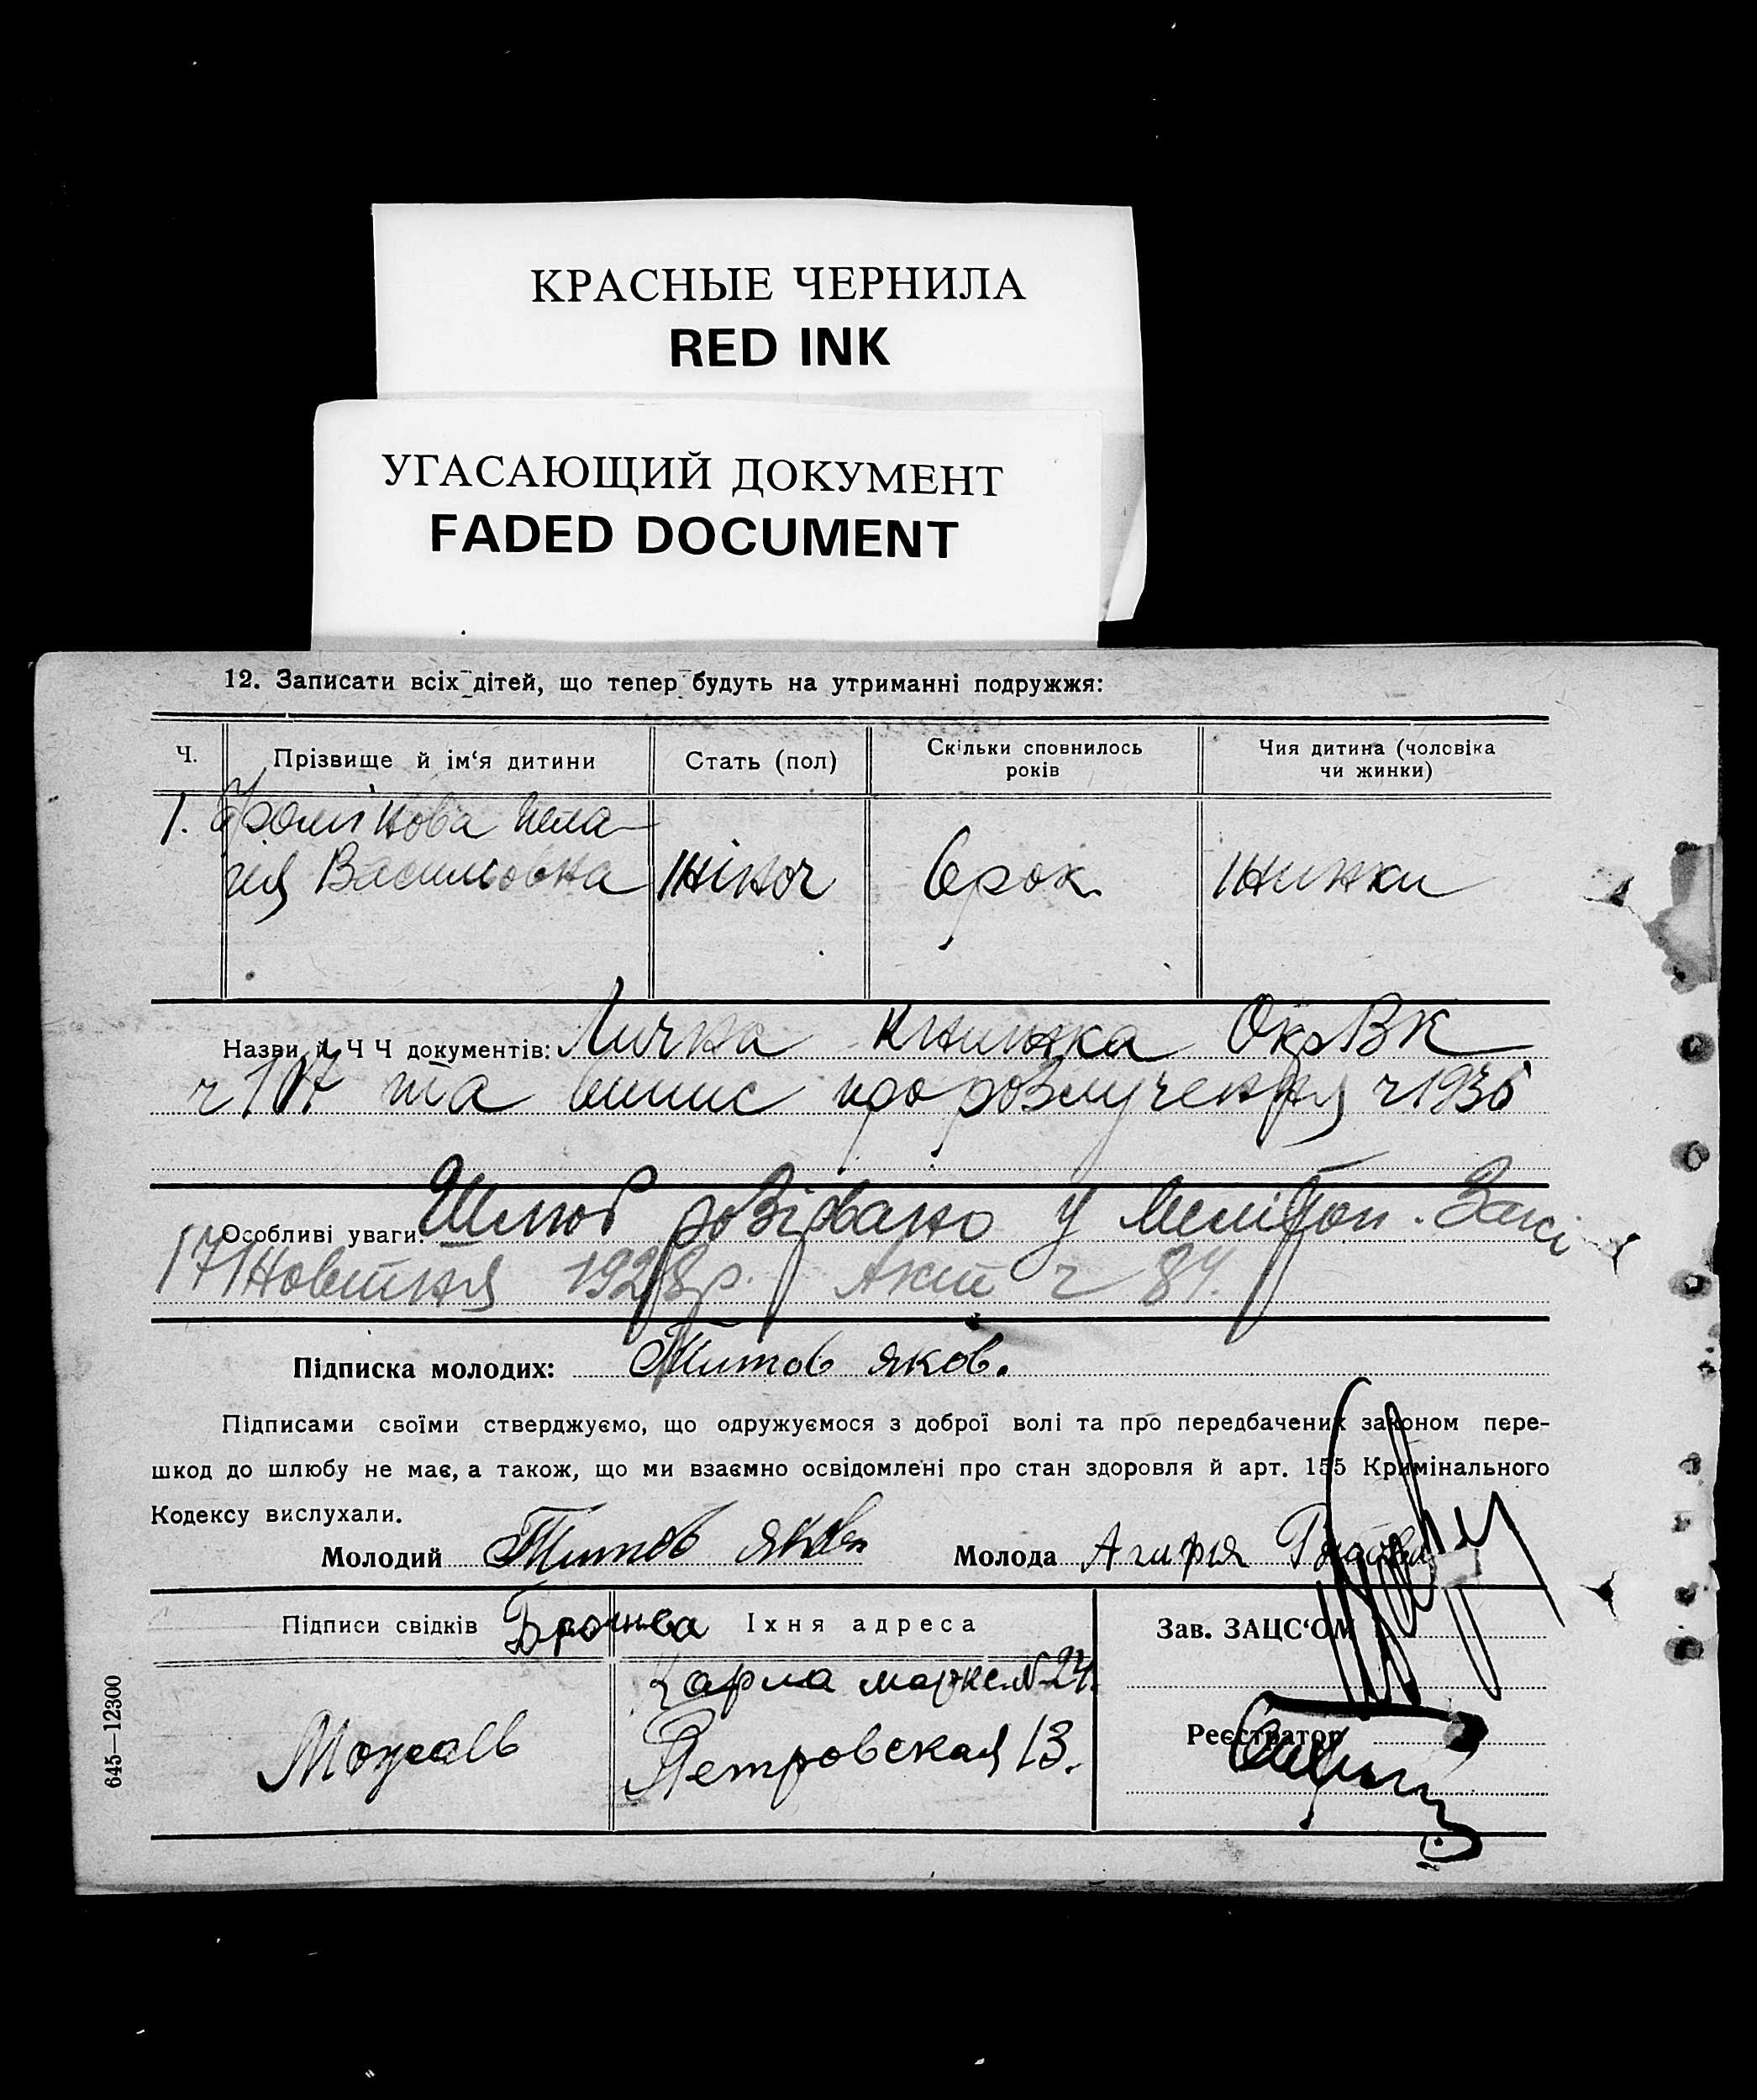 КРАСНЫЕ ЧЕРНИЛА
RED INK
УГАСАЮЩИЙ ДОКУМЕНТ
FADED DOCUMENT
12. Записати всіх дітей, що тепер будуть на утриманні подружжя:
Ч. Прізвище й ім‘я дитини Стать (пол) Скільки сповнилось років Чия дитина (чоловіка чи жинки)
1. Фомінова Пела-
гія Васильовна жіноч 6 рок. жинки
Назви й Ч Ч документів: Лична книжка ОкрВК
ч 107 та випис про розлучення ч 1936
Особливі уваги: Шлюб розірвано у Меліտоп. Загсі
17 Жовтня 1928 р. Акт ч 84.
Підписка молодих: Титов яков.
Підписами своїми стверджуємо, що одружуємося з доброї волі та про передбачених законом пере-
шкод до шлюбу не має, а також, що ми взаємно освідомлені про стан здоровля й арт. 155 Кримінального
Кодексу вислухали.
Молодий Титов яков Молода Агифия
Підписи свідків Їхня адреса Зав. ЗАЦС‘ОМ
Карла маркс N 24.
Петровская 13.
Реєстратор
645—12300